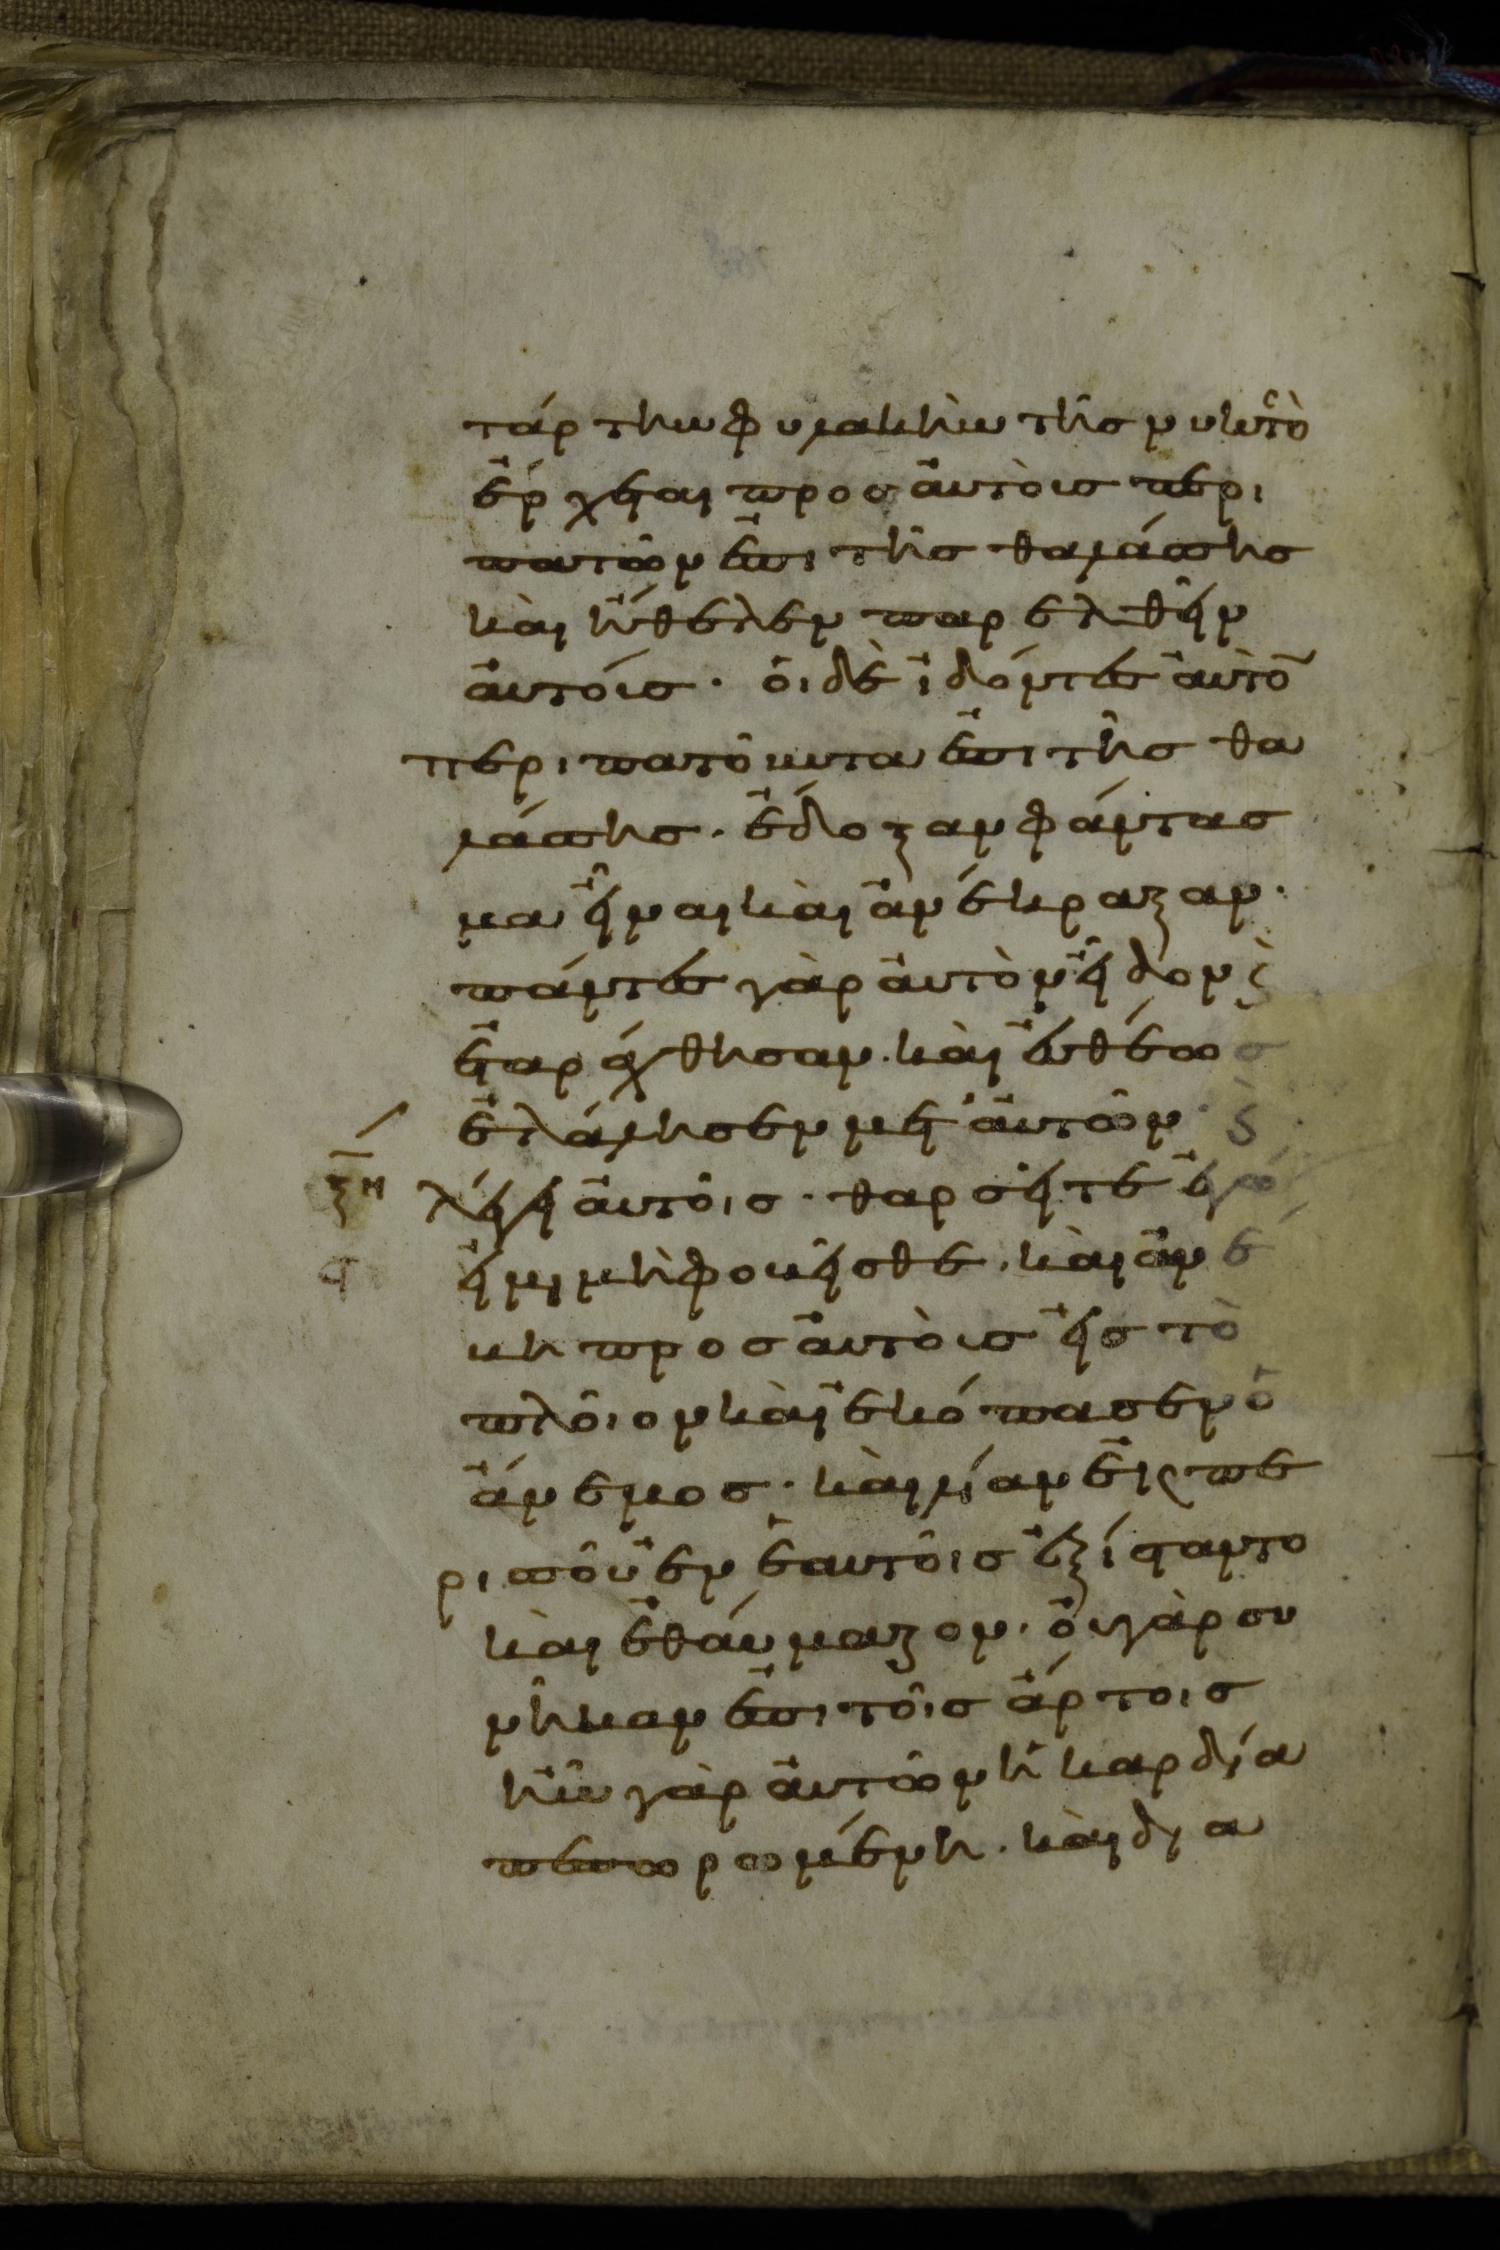 τάρτην φυλακὴν τῆς νυκτὸ
ἔρχεται προσ ἀυτὸυσ περι
πατῶν ἐπι τῆσ θαλάσσησ
κὰι ἤθελεν παρελθεῖν
ἀυτόυσ. ὁι δὲ ἰδόντες ἀυτὸ
περιπατοῦντα ἐπι τῆσ θα
λάσσησ. ἔδοξαν φάντασ
μα εἶναι κὰι ἀνέκραξαν.
πάντες γὰρ ἀυτὸν εἶδον ϛ
ἐταράχθησαν. κὰι ἐυθέωσ
ἐλάλησεν μετ' ἀυτῶν. ϛ
ξη λέγει ἀυτοῖσ. θαρσεῖτε ἐγώ
ϛ εἰμι μὴ φοβεῖσθε. κὰι ἀνέ
βη προσ ἀυτὸυσ εἰσ τὸ
πλοῖον κὰι ἐκόπασεν ὁ
ἄνεμοσ. κὰι λίαν ἐκ πε
ρισσοῦ ἐν ἑαυτοῖσ ἐξίσταντο
κὰι ἐθάυμαζον. ὀυ γὰρ συ
νῆκαν ἐπι τοῖσ ἄρτοισ
ἦν γὰρ ἀυτῶν ἡ καρδία
πεπωρωμένη. κὰι δια